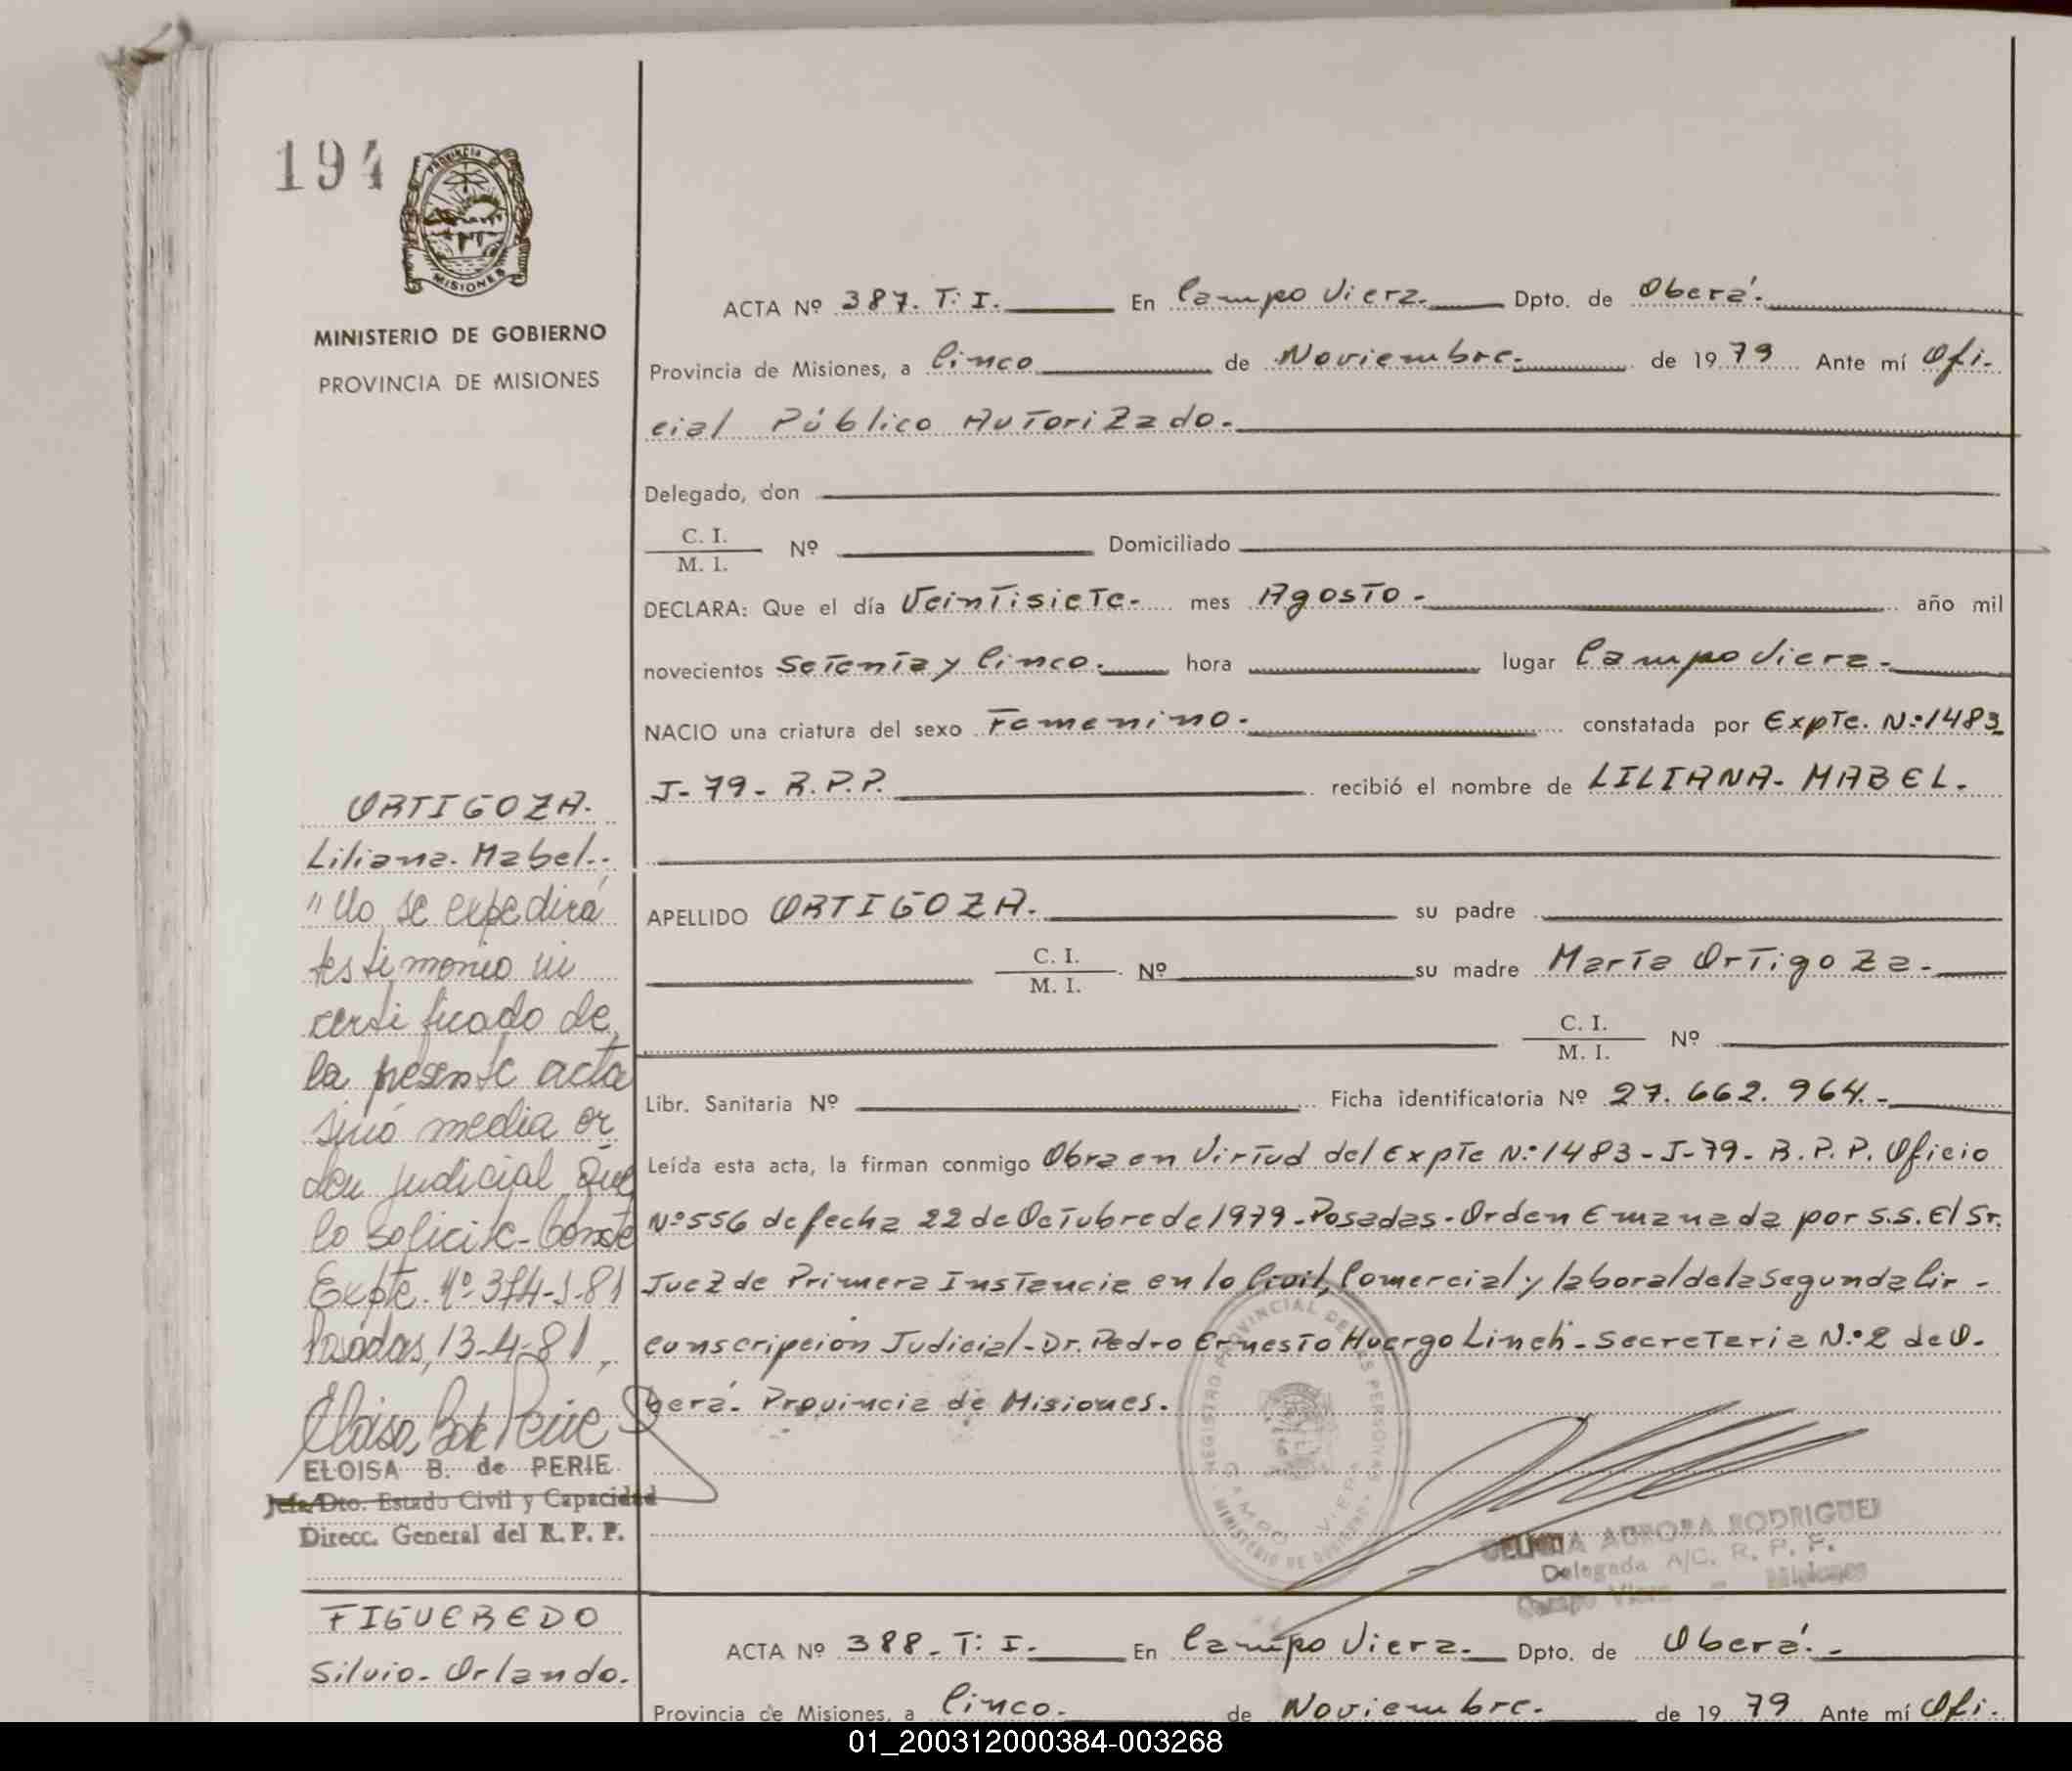 194
PROVINCIA DE
MISIONES
MINISTERIO DE GOBIERNO
PROVINCIA DE MISIONES
ACTA Nº 387. T. I. En Campo Viera. Dpto. de Oberá.
Provincia de Misiones, a Cinco de Noviembre. de 1979 Ante mí Ofi-
cial Público Autorizado.
Delegado, don
C. I.
M. I. Nº Domiciliado
DECLARA: Que el día Veintisiete- mes Agosto - año mil
novecientos Setenta y Cinco. hora lugar Campo Viera-
NACIO una criatura del sexo Femenino. constatada por Expte. Nº 1483
J-79- R.P.P. recibió el nombre de LILIANA- MABEL.
APELLIDO ORTIGOZA. su padre
C. I.
M. I. Nº su madre Marta Ortigoza.
C. I.
M. I. Nº
Libr. Sanitaria Nº Ficha identificatoria Nº 27. 662. 964.-
Leída esta acta, la firman conmigo Obra en Virtud del Expte Nº 1483-J-79- R. P. P. Oficio
Nº 556 de fecha 22 de Octubre de 1979-Posadas-Orden Emanada por S.S. El Sr.
Juez de Primera Instancia en lo Civil, Comercial y laboral de la Segunda Cir-
cunscripción Judicial-Dr. Pedro Ernesto Huergo Linch-Secretaria N.º 2 de O-
berá. Provincia de Misiones.
ORTIGOZA.
Liliana. Mabel.
"No se expedirá
testimonio ni
certificado de
la presente acta
sinó media or
den judicial que
lo solicite- Conste
Expte. Nº 374-J-81
Posadas, 13-4-81,
ELOISA B. de PERIE
Jefa Dto. Estado Civil y Capacidad
Direcc. General del R. P. P.
REGISTRO PROVINCIAL DE LAS PERSONAS
CAMPO VIERA
MINISTERIO DE GOBIERNO
AURORA RODRIGUEZ
Delegada A/C. R. P. P.
Campo Viera - Misiones
FIGUEREDO
Silvio- Orlando.
ACTA Nº 388- T. I. En Campo Viera. Dpto. de Oberá.-
Provincia de Misiones, a Cinco. de Noviembre. de 1979 Ante mí Ofi-
01_200312000384-003268